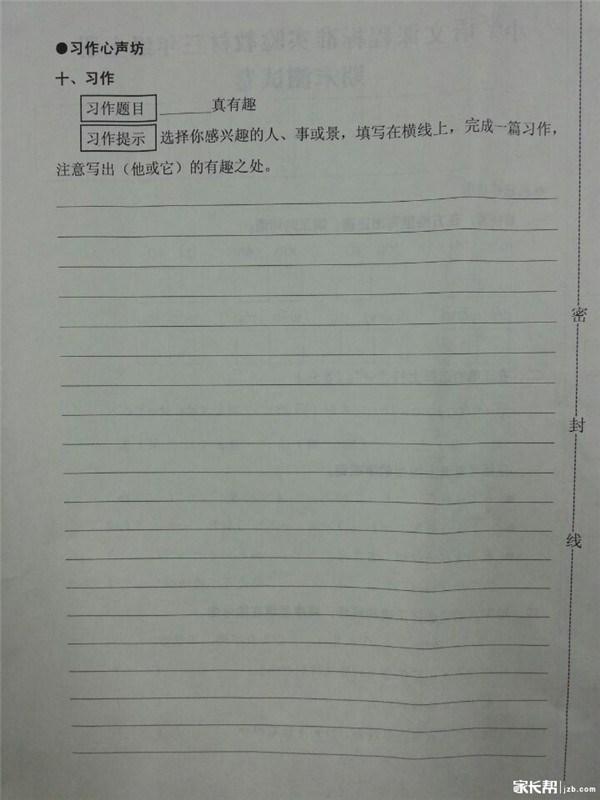 ●习作心声坊
十、习作
习作题目 ______真有趣
习作提示 选择你感兴趣的人、事或景，填写在横线上，完成一篇习作，
注意写出（他或它）的有趣之处。
密
封
线
家长帮 jzb.com